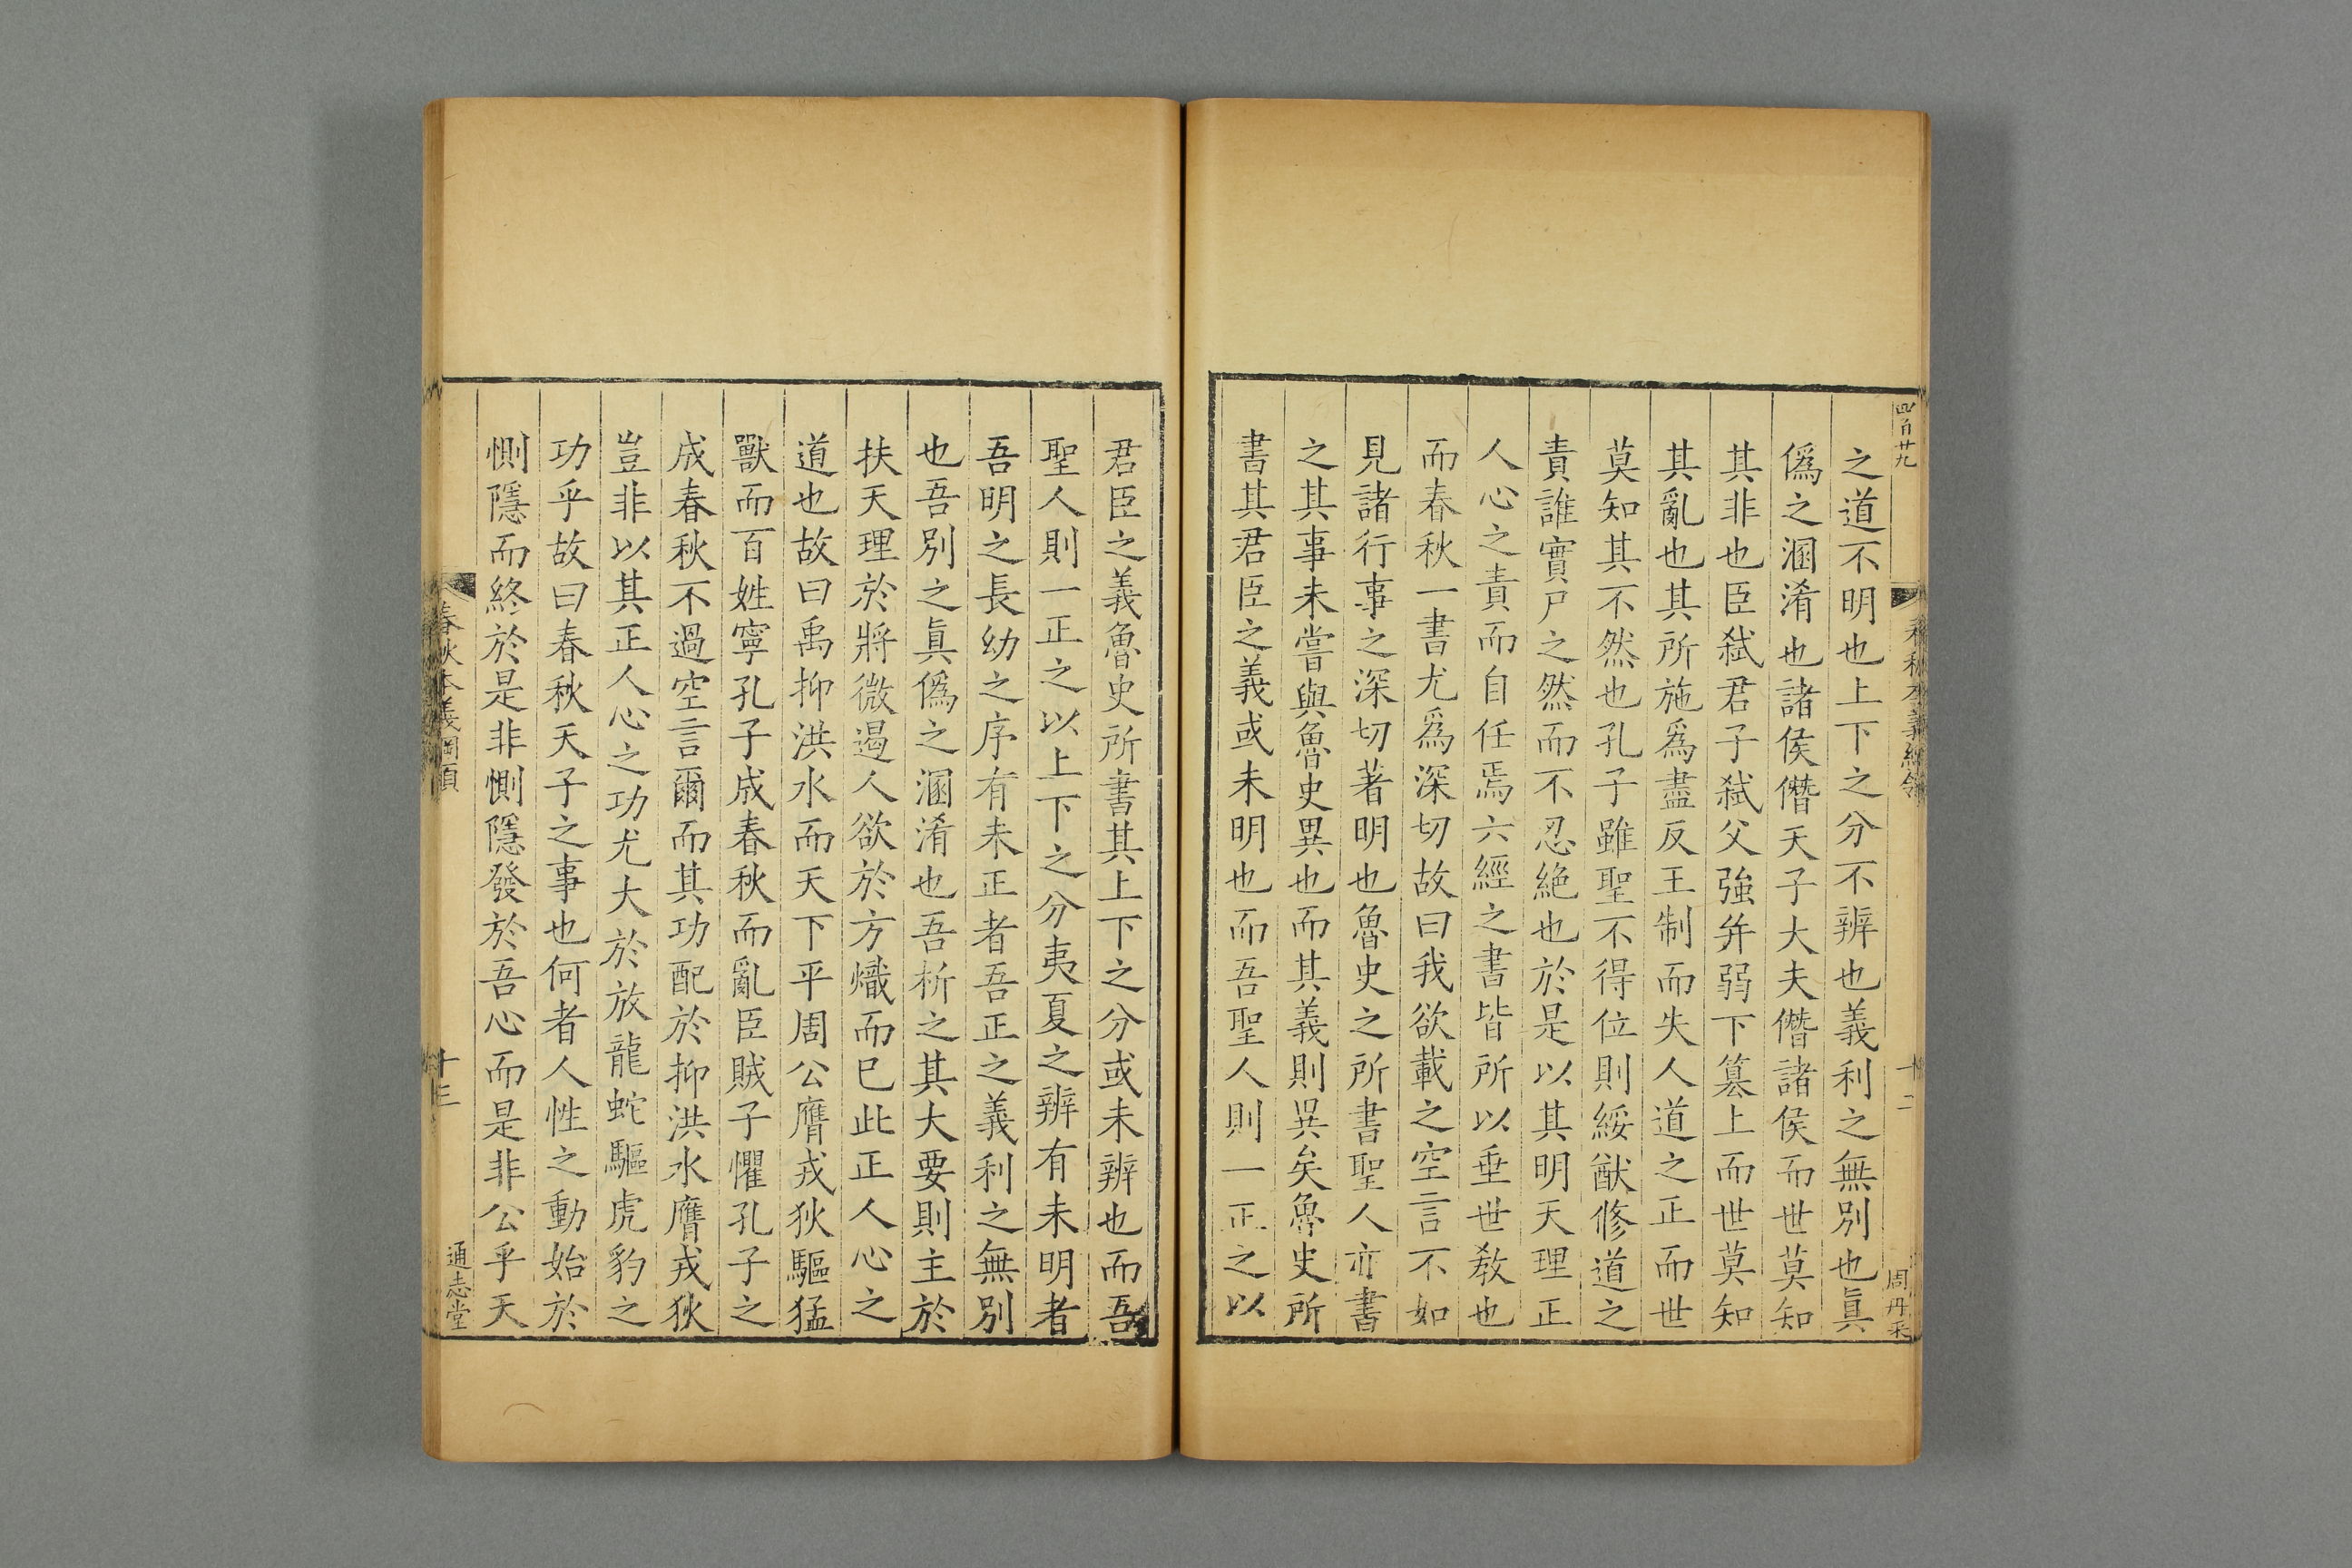 四百廿九
十二
周丹采
之道不明也上下之分不辨也義利之無別也眞
僞之溷淆也諸侯僭天子大夫僭諸侯而世莫知
其非也臣弑君子弑父強弁弱下簒上而世莫知
其亂也其所施爲盡反王制而失人道之正而世
莫知其不然也孔子雖聖不得位則綏猷修道之
責誰實尸之然而不忍絶也於是以其明天理正
人心之責而自任焉六經之書皆所以垂世敎也
而春秋一書尤爲深切故曰我欲載之空言不如
見諸行事之深切著明也魯史之所書聖人亦書
之其事未嘗與魯史異也而其義則異矣魯史所
書其君臣之義或未明也而吾聖人則一正之以
君臣之義魯史所書其上下之分或未辨也而吾
聖人則一正之以上下之分夷夏之辨有未明者
吾明之長幼之序有未正者吾正之義利之無別
也吾別之眞僞之溷淆也吾析之其大要則主於
扶天理於將微遏人欲於方熾而已此正人心之
道也故曰禹抑洪水而天下平周公膺戎狄驅猛
獸而百姓寧孔子成春秋而亂臣賊子懼孔子之
成春秋不過空言爾而其功配於抑洪水膺戎狄
豈非以其正人心之功尤大於放龍蛇驅虎豹之
功乎故曰春秋天子之事也何者人性之動始於
惻隱而終於是非惻隱發於吾心而是非公乎天
春秋本義綱領
十三
通志堂